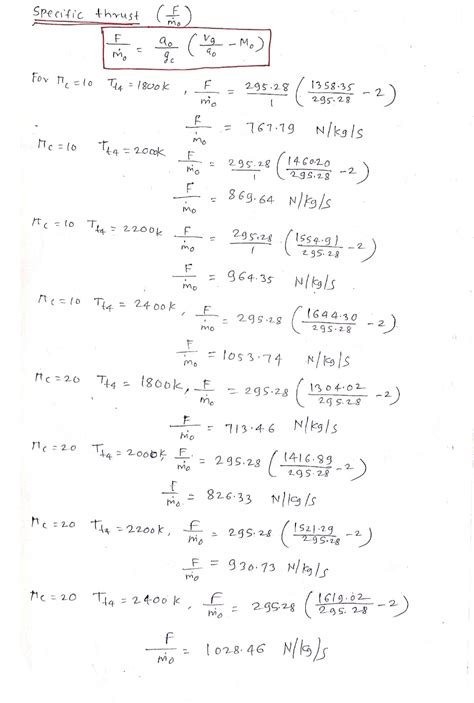 Specific thrust (F/ṁ₀)
F/ṁ₀ = a₀/g_c (V₉/a₀ - M₀)
For π_c = 10 T_t4 = 1800K, F/ṁ₀ = 295.28/1 (1358.35/295.28 - 2)
F/ṁ₀ = 767.79 N/kg/s
π_c = 10 T_t4 = 2000K F/ṁ₀ = 295.28/1 (146020/295.28 - 2)
F/ṁ₀ = 869.64 N/kg/s
π_c = 10 T_t4 = 2200K F/ṁ₀ = 295.28/1 (1554.91/295.28 - 2)
F/ṁ₀ = 964.35 N/kg/s
π_c = 10 T_t4 = 2400K, F/ṁ₀ = 295.28 (1644.30/295.28 - 2)
F/ṁ₀ = 1053.74 N/kg/s
π_c = 20 T_t4 = 1800K, F/ṁ₀ = 295.28 (1304.02/295.28 - 2)
F/ṁ₀ = 713.46 N/kg/s
π_c = 20 T_t4 = 2000K, F/ṁ₀ = 295.28 (1416.89/295.28 - 2)
F/ṁ₀ = 826.33 N/kg/s
π_c = 20 T_t4 = 2200K, F/ṁ₀ = 295.28 (1521.29/295.28 - 2)
F/ṁ₀ = 930.73 N/kg/s
π_c = 20 T_t4 = 2400K, F/ṁ₀ = 295.28 (1619.02/295.28 - 2)
F/ṁ₀ = 1028.46 N/kg/s